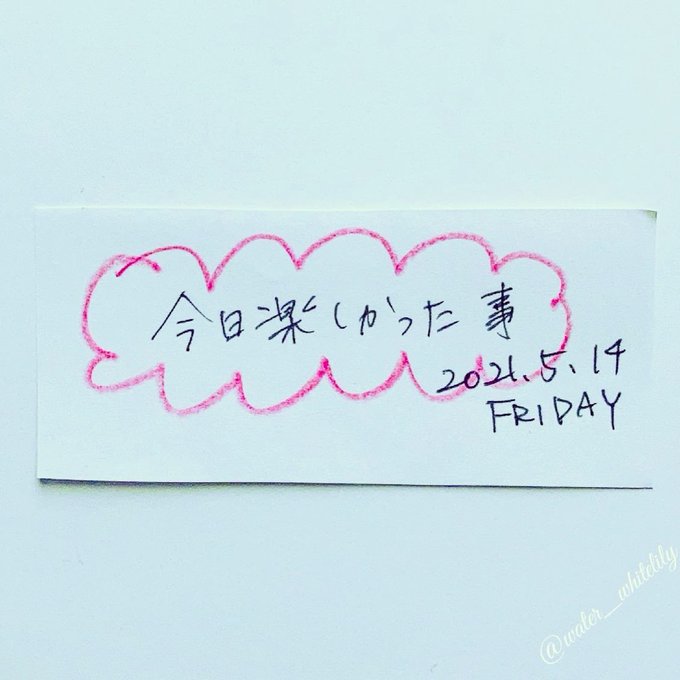 今日楽しかった事
2021.5.14
FRIDAY
@water__whitelily